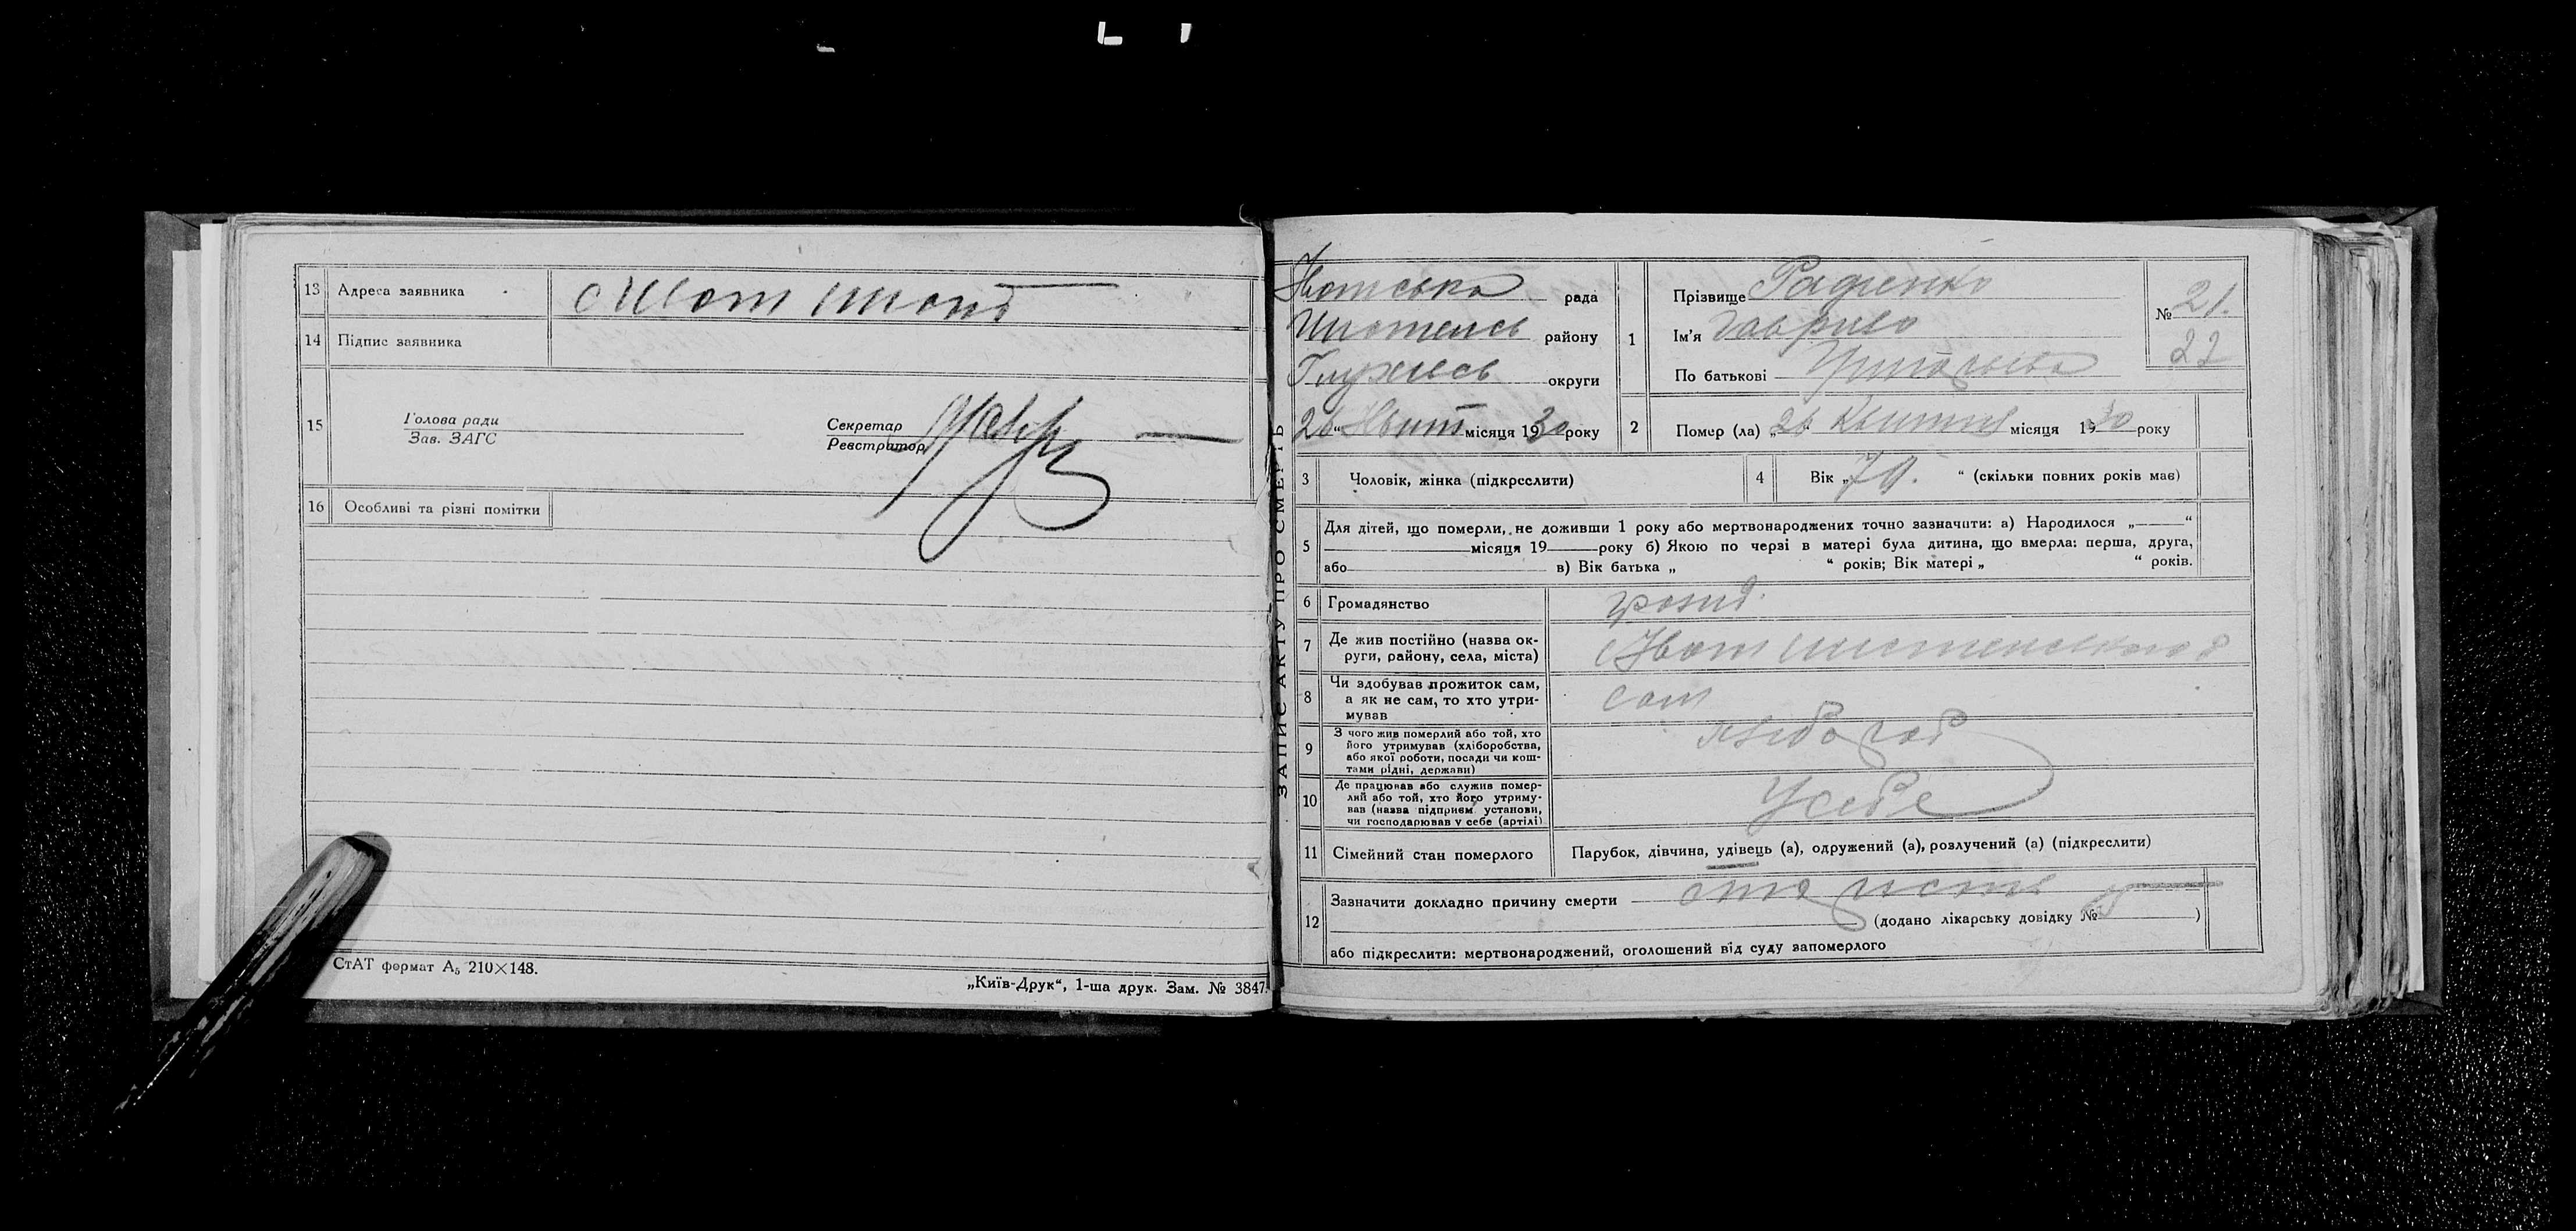 13 Адреса заявника
14 Підпис заявника
15 Голова ради
Зав. ЗАГС
Секретар
Реєстратор
16 Особливі та різні помітки
СтАТ формат А₅ 210×148.
„Київ-Друк“, 1-ша друк. Зам. № 3847.
ЗАПИС АКТУ ПРО СМЕРТЬ
рада
району
округи
26 “ місяця 1930 року
1 Прізвище Радченко
Ім'я Гаврило
По батькові
№ 21.
22
2 Помер (ла) „26 “ місяця 1930 року
3 Чоловік, жінка (підкреслити)
4 Вік „70. “ (скільки повних років має)
5 Для дітей, що померли, не доживши 1 року або мертвонароджених точно зазначити: а) Народилося „ “
місяця 19 року б) Якою по черзі в матері була дитина, що вмерла: перша, друга,
або в) Вік батька „ “ років; Вік матері „ “ років.
6 Громадянство
7 Де жив постійно (назва ок-
руги, району, села, міста)
8 Чи здобував прожиток сам,
а як не сам, то хто утри-
мував
сам
9 З чого жив померлий або той, хто
його утримував (хліборобства,
або якої роботи, посади чи кош-
тами рідні, держави)
хлібороб
10 Де працював або служив помер-
лий або той, хто його утриму-
вав (назва підприєм. установи,
чи господарював у себе (артілі)
У себе
11 Сімейний стан померлого Парубок, дівчина, удівець (а), одружений (а), розлучений (а) (підкреслити)
12 Зазначити докладно причину смерти
(додано лікарську довідку № )
або підкреслити: мертвонароджений, оголошений від суду запомерлого